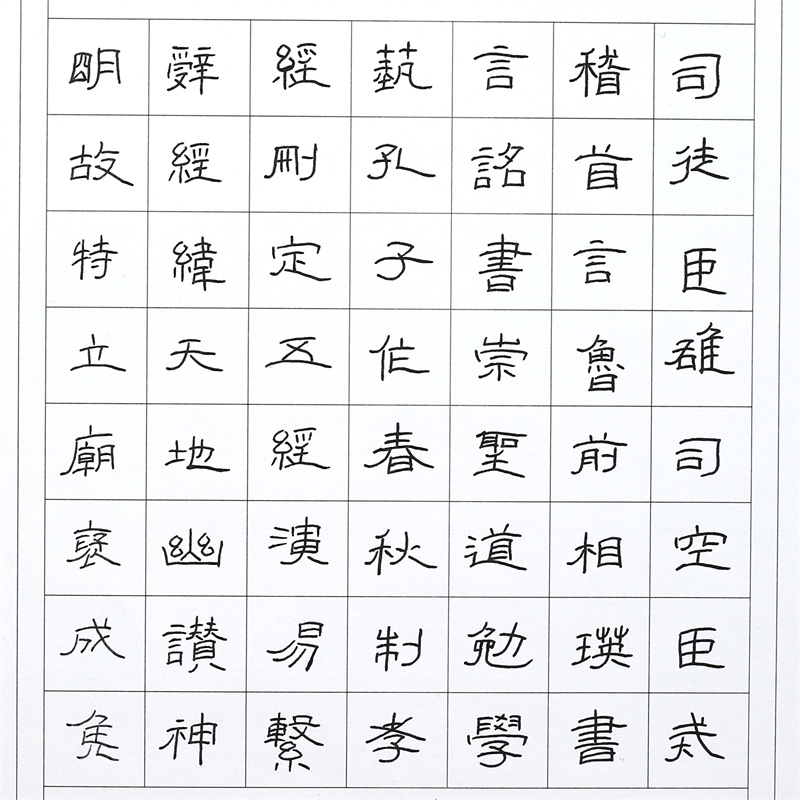 司徒臣雄司空臣戒
稽首言魯前相瑛書
言詔書崇聖道勉學
藝孔子作春秋制孝
經刪定五經演易繫
辭經緯天地幽讚神
明故特立廟褒成侯